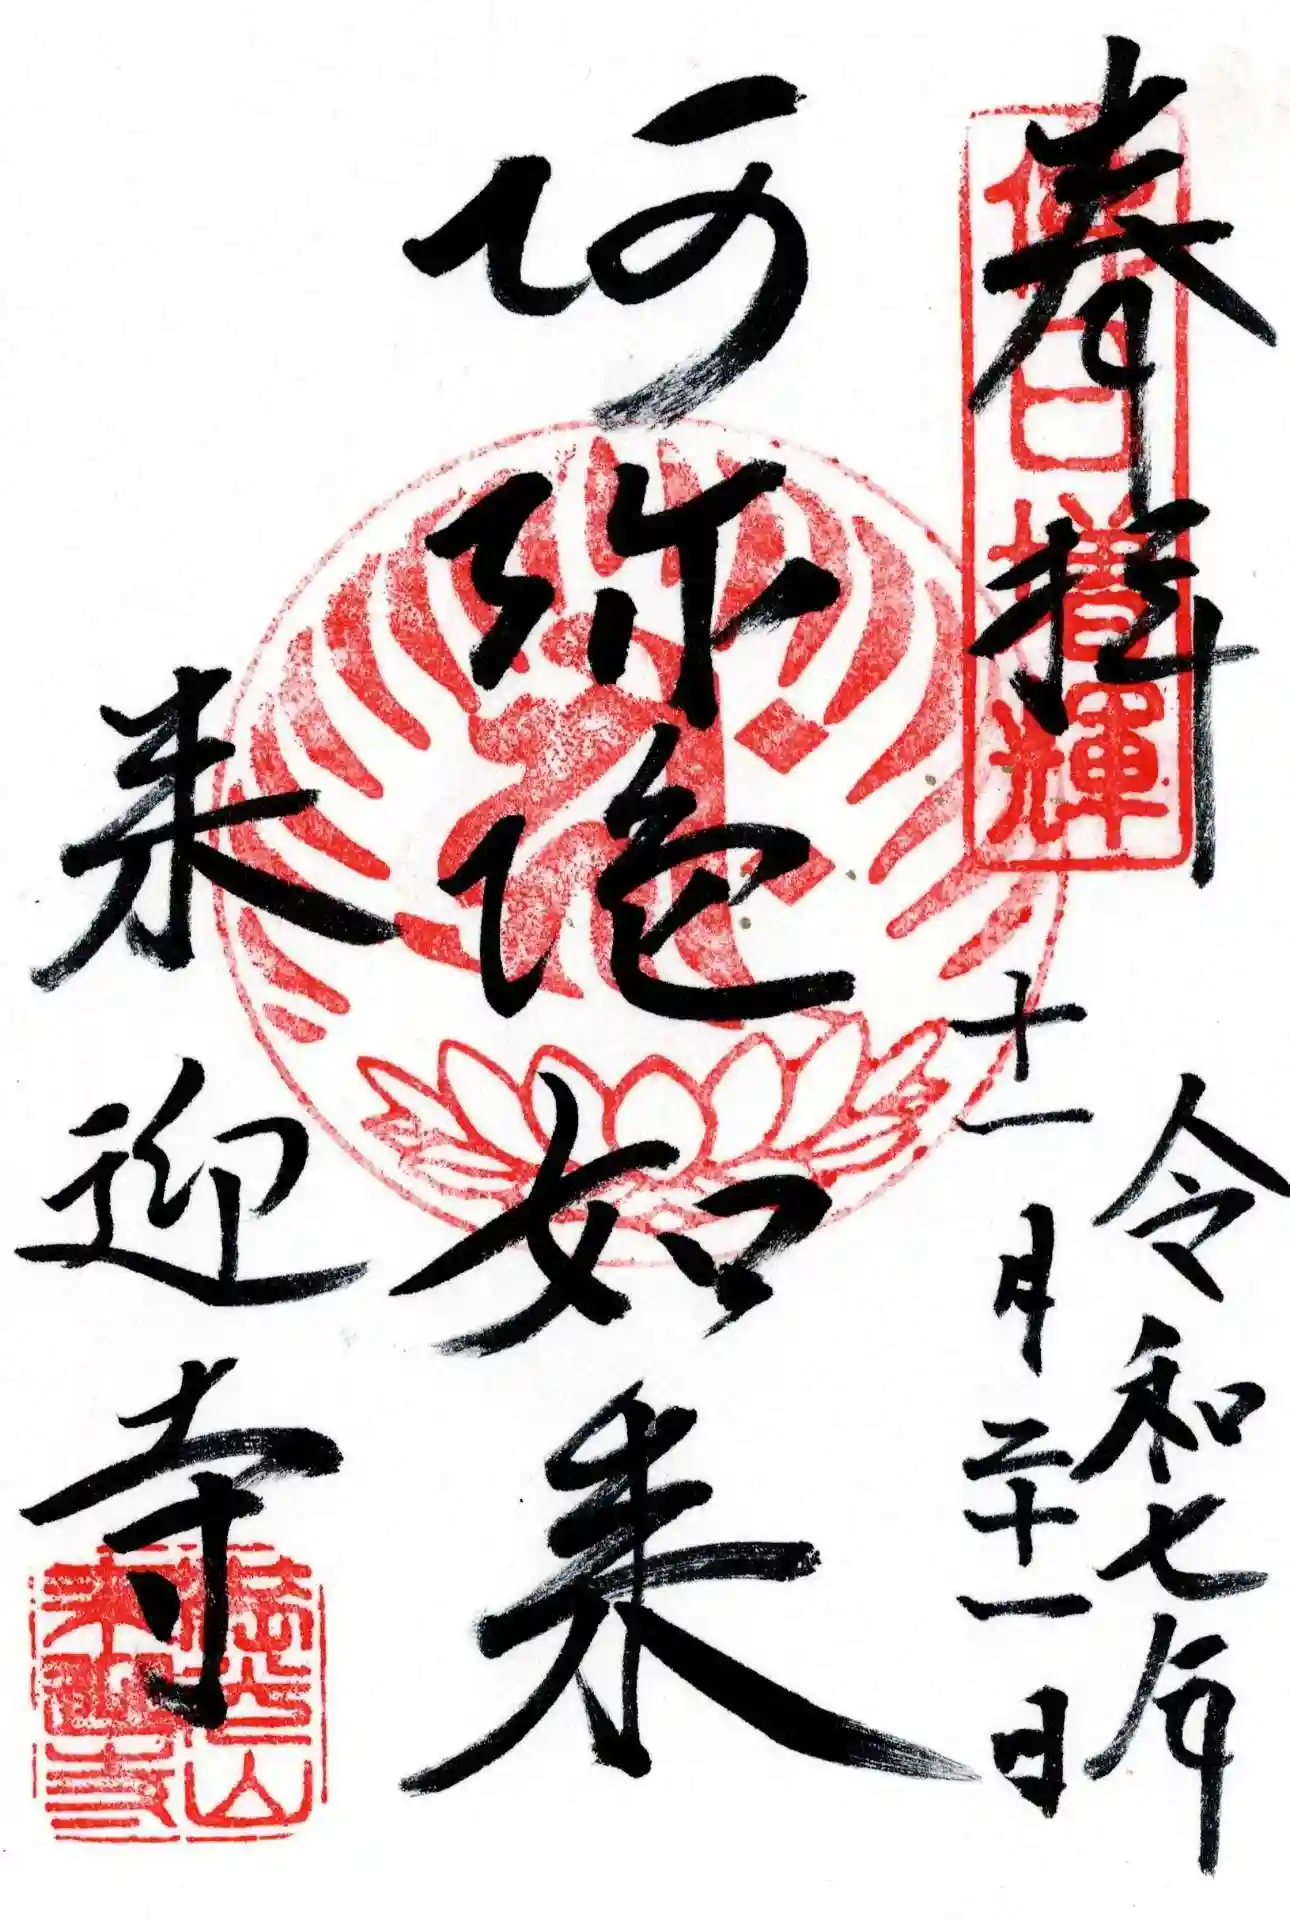 奉拝
令和七年
十一月二十一日
阿弥陀如来
来迎寺
佛日増輝
来迎寺